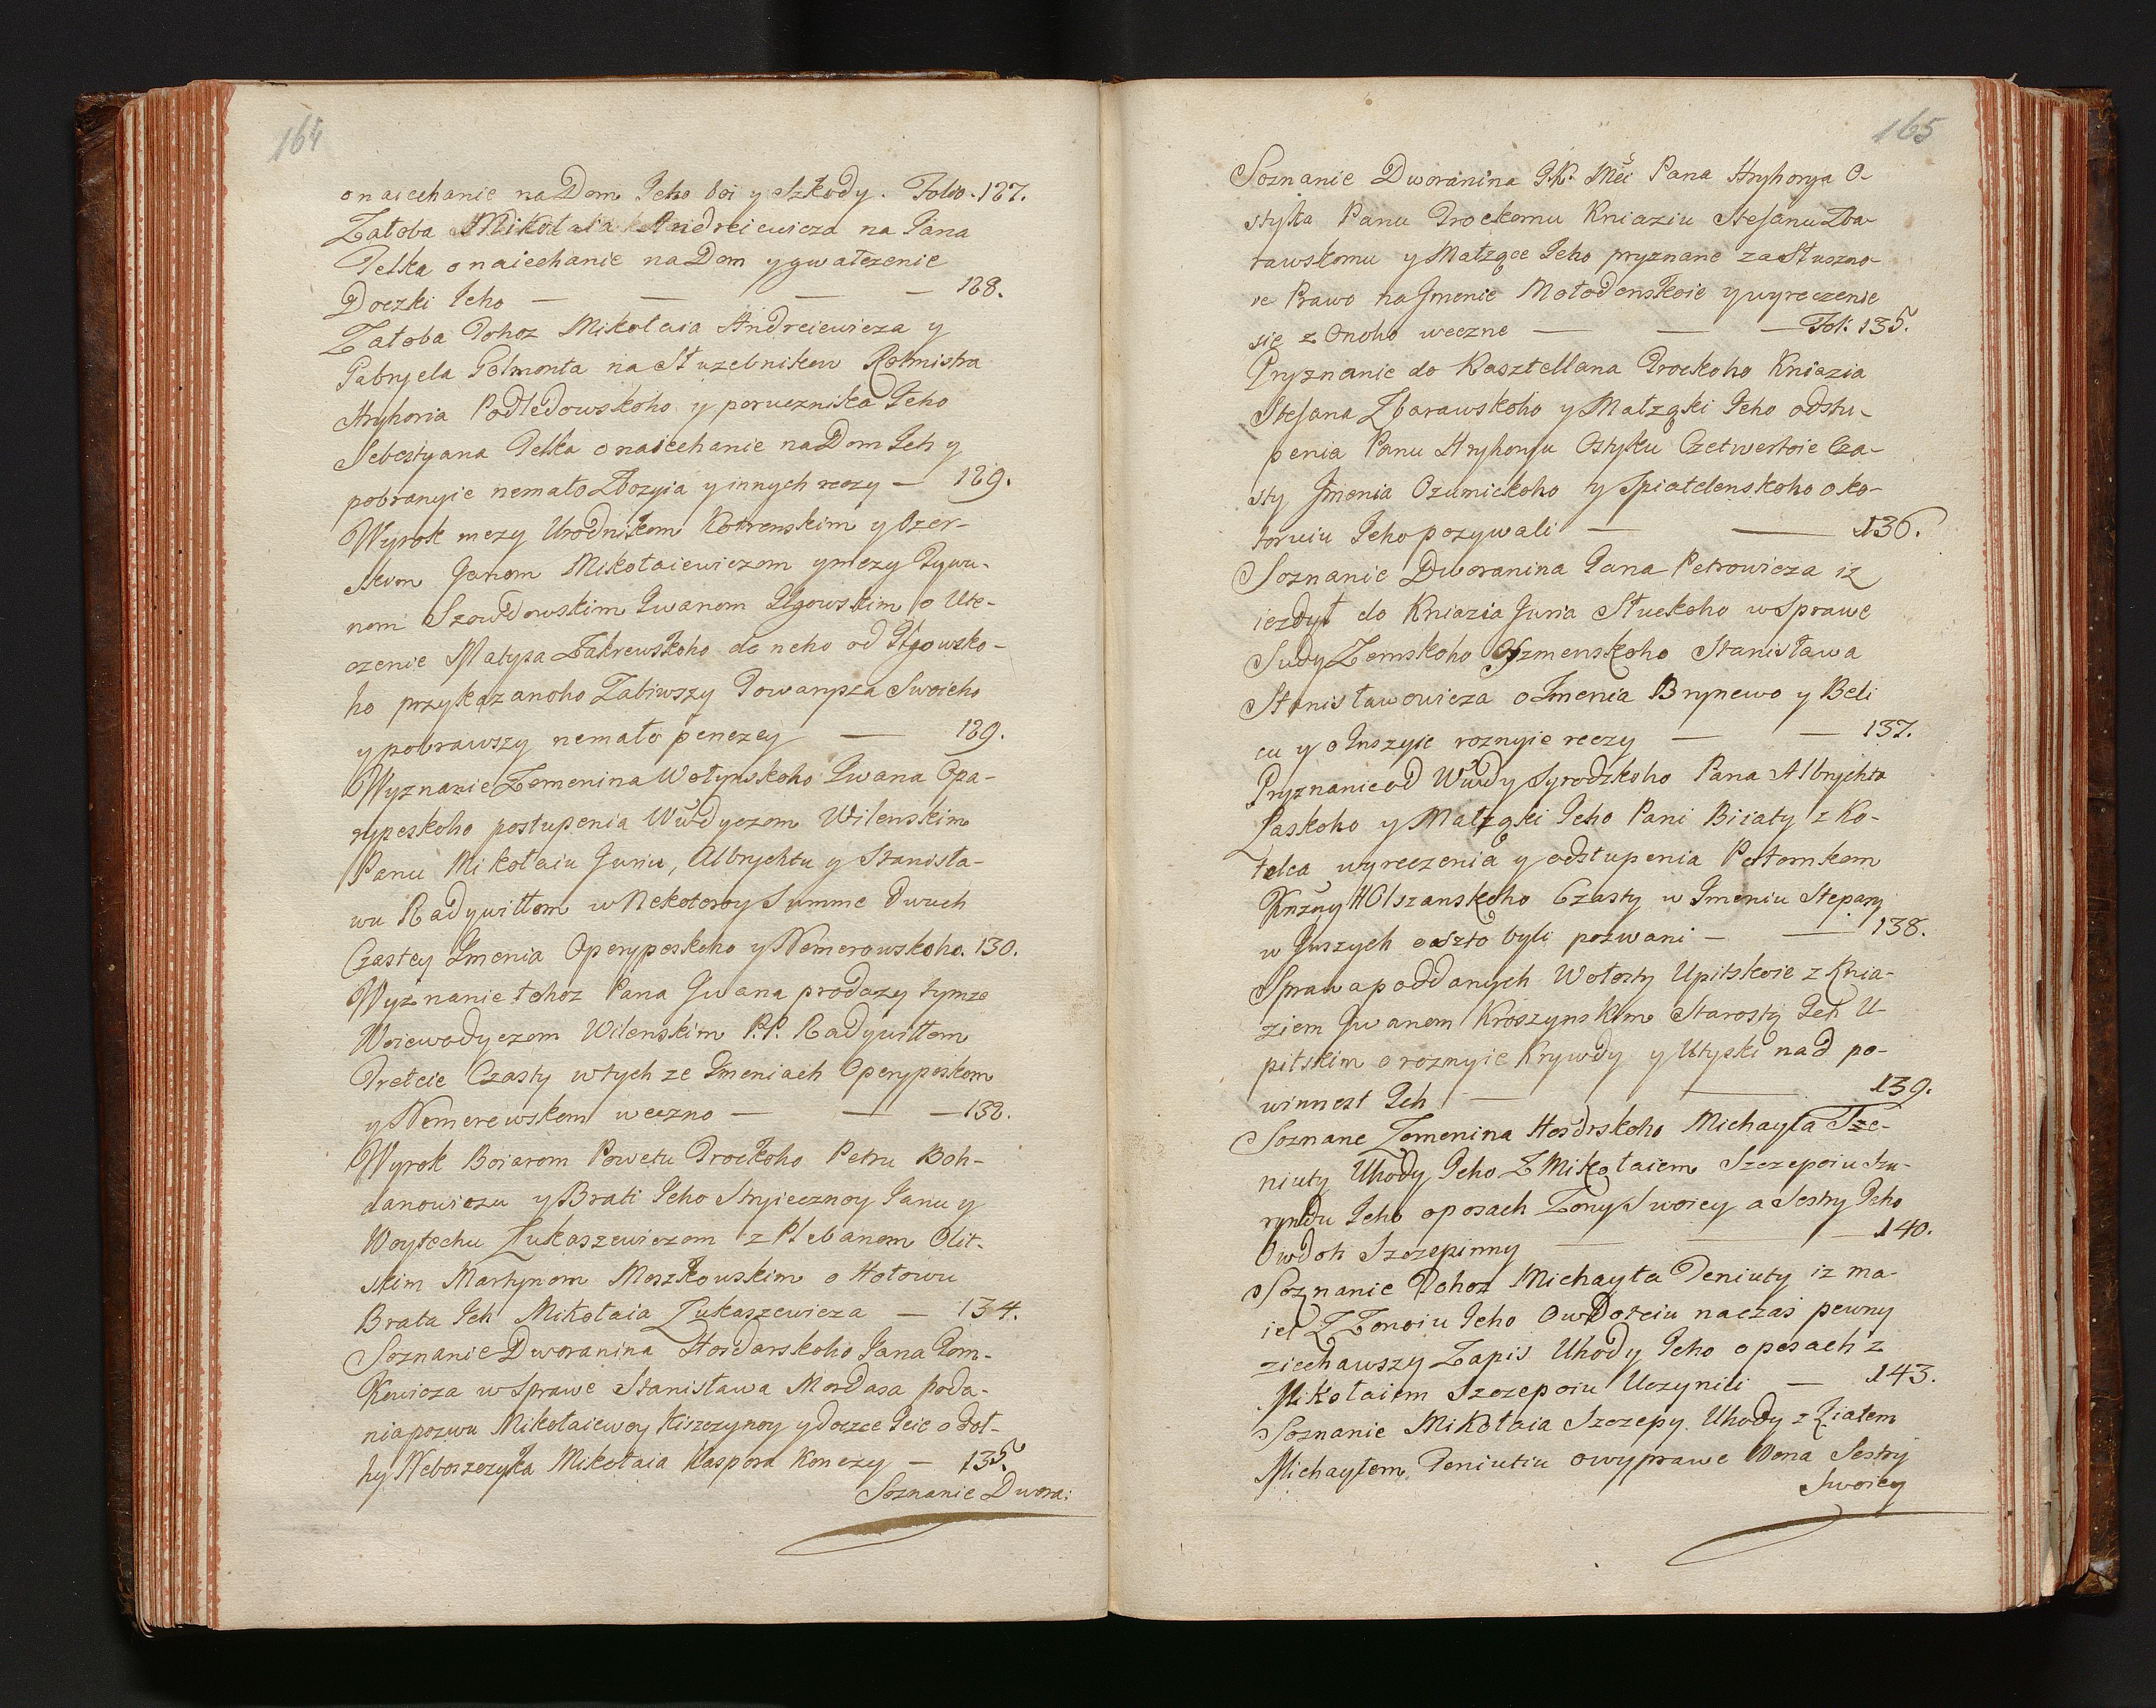 164
o naiechanie na Dom Jeho boi y szkody. Folio. 127.
Załoba Mikołaia Andreiewicza na Jana
Pelka o naiechanie na Dom y gwałczenie
Doczki Jeho — — — — 128.
Załoba Tohoz Mikołaia Andreiewicza y
Gabryela Gelmonta na Słuzebnikow Rotmistra
Hryhoria Podledowskoho y porucznika Jeho
Sebestyana Pelka o naiechanie na Dom Jeh y
pobranyie nemało Zbozyia y innych reczy — 129.
Wyrok mezy Urodnikom Kotrenskim y Ozer-
skim Janom Mikołaiewiczom y mezy Tywu-
nom Szowdowskim Iwanom Ilgowskim o Ute-
czenie Matysa Zakrewskoho do neho od Ilgowsko-
ho przykazanoho Zabiwszy Towarysza Swoieho
y pobrawszy nemało penezey — 129.
Wyznanie Zemenina Wołynskoho Iwana Opa-
rypeskoho postupenia Wwdyczom Wilenskim
Panu Mikołaiu Juriu, Albrychtu y Stanisła-
wu Radywiłłom w Nekotoroy Summe Dwuch
Czastey Imenia Operypeskoho y Nemerowskoho. 130.
Wyznanie tohoz Pana Iwana prodazy tymze
Woiewodyczom Wilenskim P.P. Radywiłłom
Treteie Czasty w tych ze Imeniach Operypeskom
y Nemerewskom weczno — — — 132.
Wyrok Boiarom Powetu Trockoho Petru Boh-
danowiczu y Brati Jeho Stryiecznoy Janu y
Woytechu Łukaszewiczom z Plebanom Olit-
skim Martynom Moszkowskim o Hołowu
Brata Jeh Mikołaia Łukaszewicza — 134.
Soznanie Dworanina Hosdarskoho Jana Tom-
kowicza w Sprawe Stanisława Mordasa poda-
nia pozwu Mikołaiewoy Kiszczynoy y doczce Jeie o doł-
hy Neboszczyka Mikołaia Kaspora Konczy — 135.
Soznanie Dwora:
165
Soznanie Dworanina J.K. Mci Pana Hryhorya O-
styka Panu Trockomu Kniaziu Stefanu Zba-
rawskomu y Małzqce Jeho pryznane za Słuszno-
ie Prawo na Imenie Mołodenskoie y wyreczenie
się z Onoho weczne — — — Fol: 135.
Pryznanie do Kasztellana Trockoho Kniazia
Stefana Zbarawskoho y Małzqki Jeho odstu-
penia Panu Hryhoryu Ostyku Czetwertoie Cza-
sty Imenia Ozunickoho y Spiatelenskoho o ko-
toruiu Jeho pozywali — — 136.
Soznanie Dworanina Jana Petrowicza iz
iezdył do Kniazia Juria Słuckoho w Sprawe
Sudy Zemskoho Oszmenskoho Stanisława
Stanisławowicza o Imenia Brynewo y Beli
cu y o Inszyie roznyie reczy — — 137.
Pryznanie od Wwdy Syrodzkoho Pana Albrychta
Łaskoho y Małzqki Jeho Pani Biiaty z Ko-
telca wyreczenia y odstupenia Potomkom
Knzny HOlszanskoho Czasty w Imeniu Stepany
w Juszych oaszto byli pozwani — — 138.
Sprawa poddanych Wołosty Upitskoie z Knia-
ziem Iwanom Kroszynskim Starosty Jeh U-
pitskim o roznyie Krywdy y Utyski nad po-
winnost Jeh — — 139.
Soznane Zemenina Hosdrskoho Michayła Tze-
niuty Uhody Jeho Z Mikołaiem Szczepoiu Szu-
ryndu Jeho o posach Zony Swoiey a Sestry Jeho
Owdoti Szczepinny — — — 140.
Soznanie Tohoz Michayła Teniuty iz ma-
iet Z Zonoiu Jeho Owdoteiu na czas pewny
ziechawszy Zapis Uhody Jeho o posach z
Mikołaiem Szczepoiu Uczynili — 143.
Soznanie Mikołaia Szczepy Uhody z Ziatem
Michayłem Teniutiu o wyprawe Wona Sestry
Swoiey